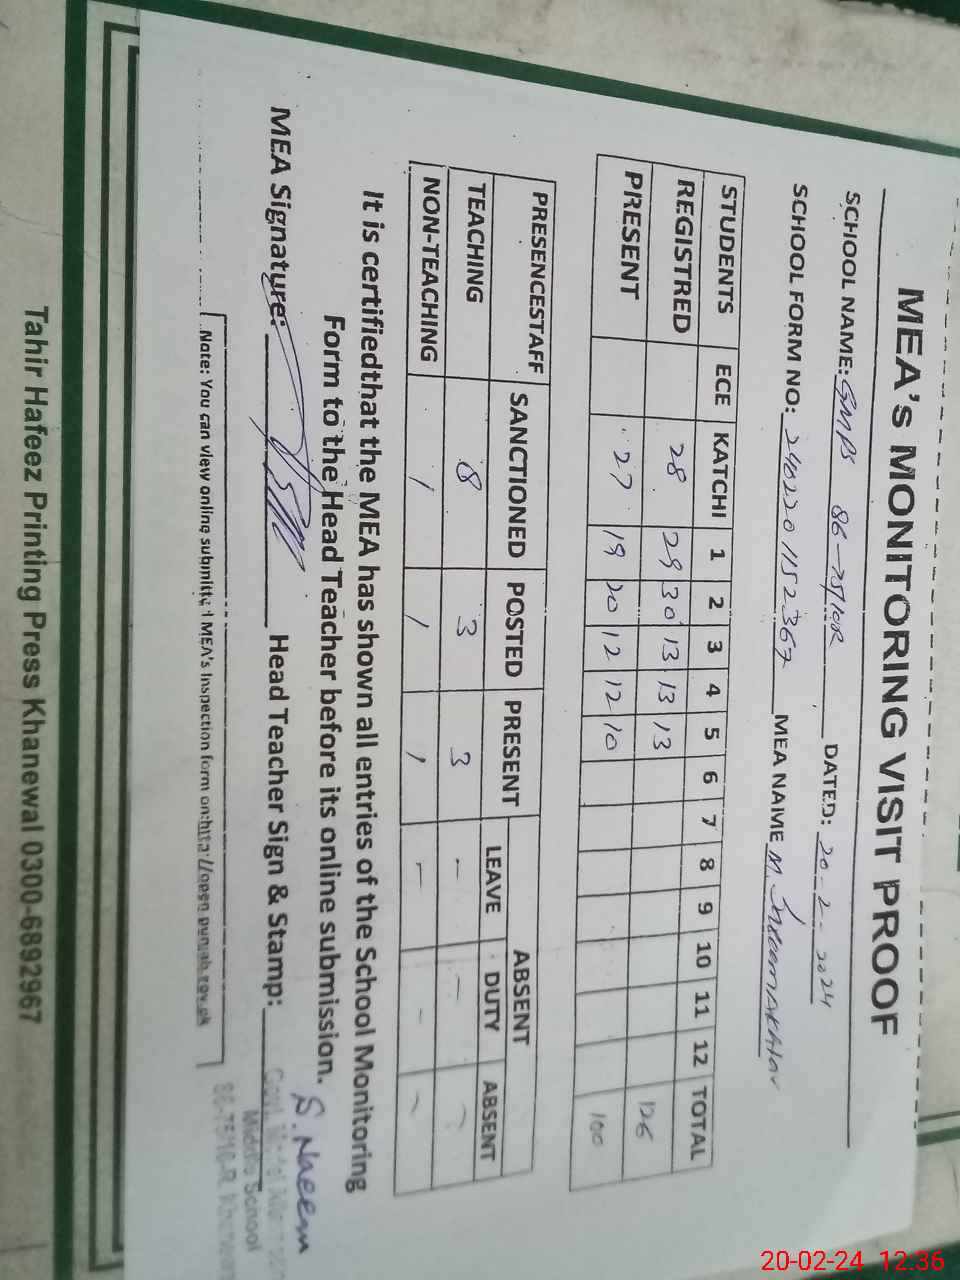 MEA's MONITORING VISIT PROOF
SCHOOL NAME: GMPS 86-75/10R DATED: 20-2-2024
SCHOOL FORM NO: 2402201152367 MEA NAME M.
STUDENTS ECE KATCHI 1 2 3 4 5 6 7 8 9 10 11 12 TOTAL
REGISTRED 28 29 30 13 13 13 126
PRESENT 27 19 20 12 12 10 100
PRESENCESTAFF SANCTIONED POSTED PRESENT ABSENT
LEAVE DUTY ABSENT
TEACHING 8 3 3 - - -
NON-TEACHING 1 1 1 - - -
It is certifiedthat the MEA has shown all entries of the School Monitoring
Form to the Head Teacher before its online submission.
MEA Signature: Head Teacher Sign & Stamp: S. Naeem
Middle School
86-75/10-R, Khanewal
Note: You can view online submitted MEA's Inspection form on:http://open.punjab.gov.pk
Tahir Hafeez Printing Press Khanewal 0300-6892967
20-02-24 12:36